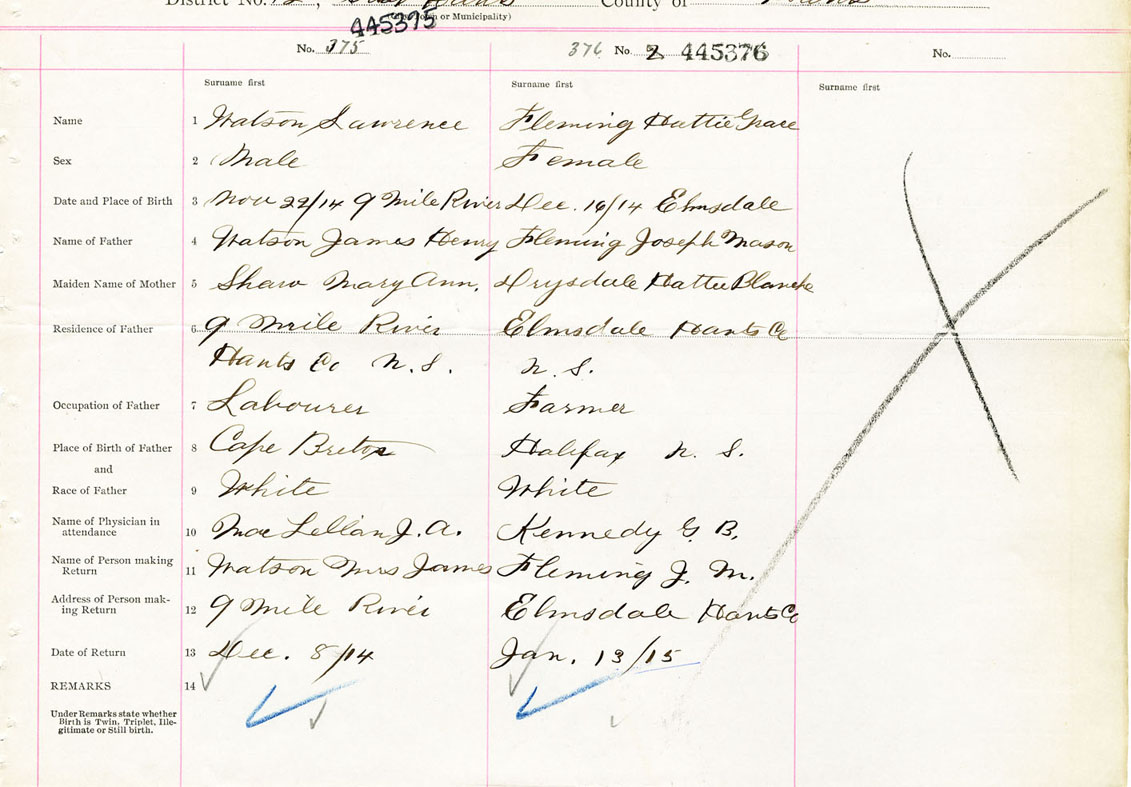 District No. 12, East Hants County of Hants
(City, Town or Municipality)
445375
No. 375 376 No. 2 445376 No.
Surname first Surname first Surname first
Name 1 Watson Lawrence Fleming Hattie Grace
Sex 2 Male Female
Date and Place of Birth 3 Nov 22/14 9 Mile River Dec. 16/14 Elmsdale
Name of Father 4 Watson James Henry Fleming Joseph Mason
Maiden Name of Mother 5 Shaw Mary Ann. Drysdale Hattie Blanche
Residence of Father 6 9 Mile River Elmsdale Hants Co
Hants Co N.S. N.S.
Occupation of Father 7 Labourer Farmer
Place of Birth of Father 8 Cape Breton Halifax N. S.
and
Race of Father 9 White White
Name of Physician in
attendance 10 MacLellan J. A. Kennedy G B.
Name of Person making
Return 11 Watson Mrs James Fleming J. M.
Address of Person mak-
ing Return 12 9 Mile River Elmsdale Hants Co
Date of Return 13 Dec. 8/14 Jan. 13/15
REMARKS 14
Under Remarks state whether
Birth is Twin, Triplet, Ille-
gitimate or Still birth.